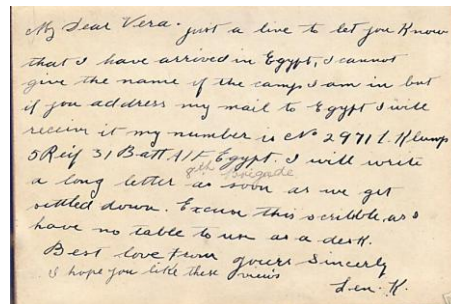 My Dear Vera. just a line to let you know
that I have arrived in Egypt, I cannot
give the name of the camp I am in but
if you address my mail to Egypt I will
receive it my number is No 2971 L. Klump
5 Reif 31 Batt AIF Egypt. I will write
8th Brigade
a long letter as soon as we get
settled down. Excuse this scribble, as I
have no table to use as a desk.
Best love from yours Sincerely
I hope you like these views
Len. K.